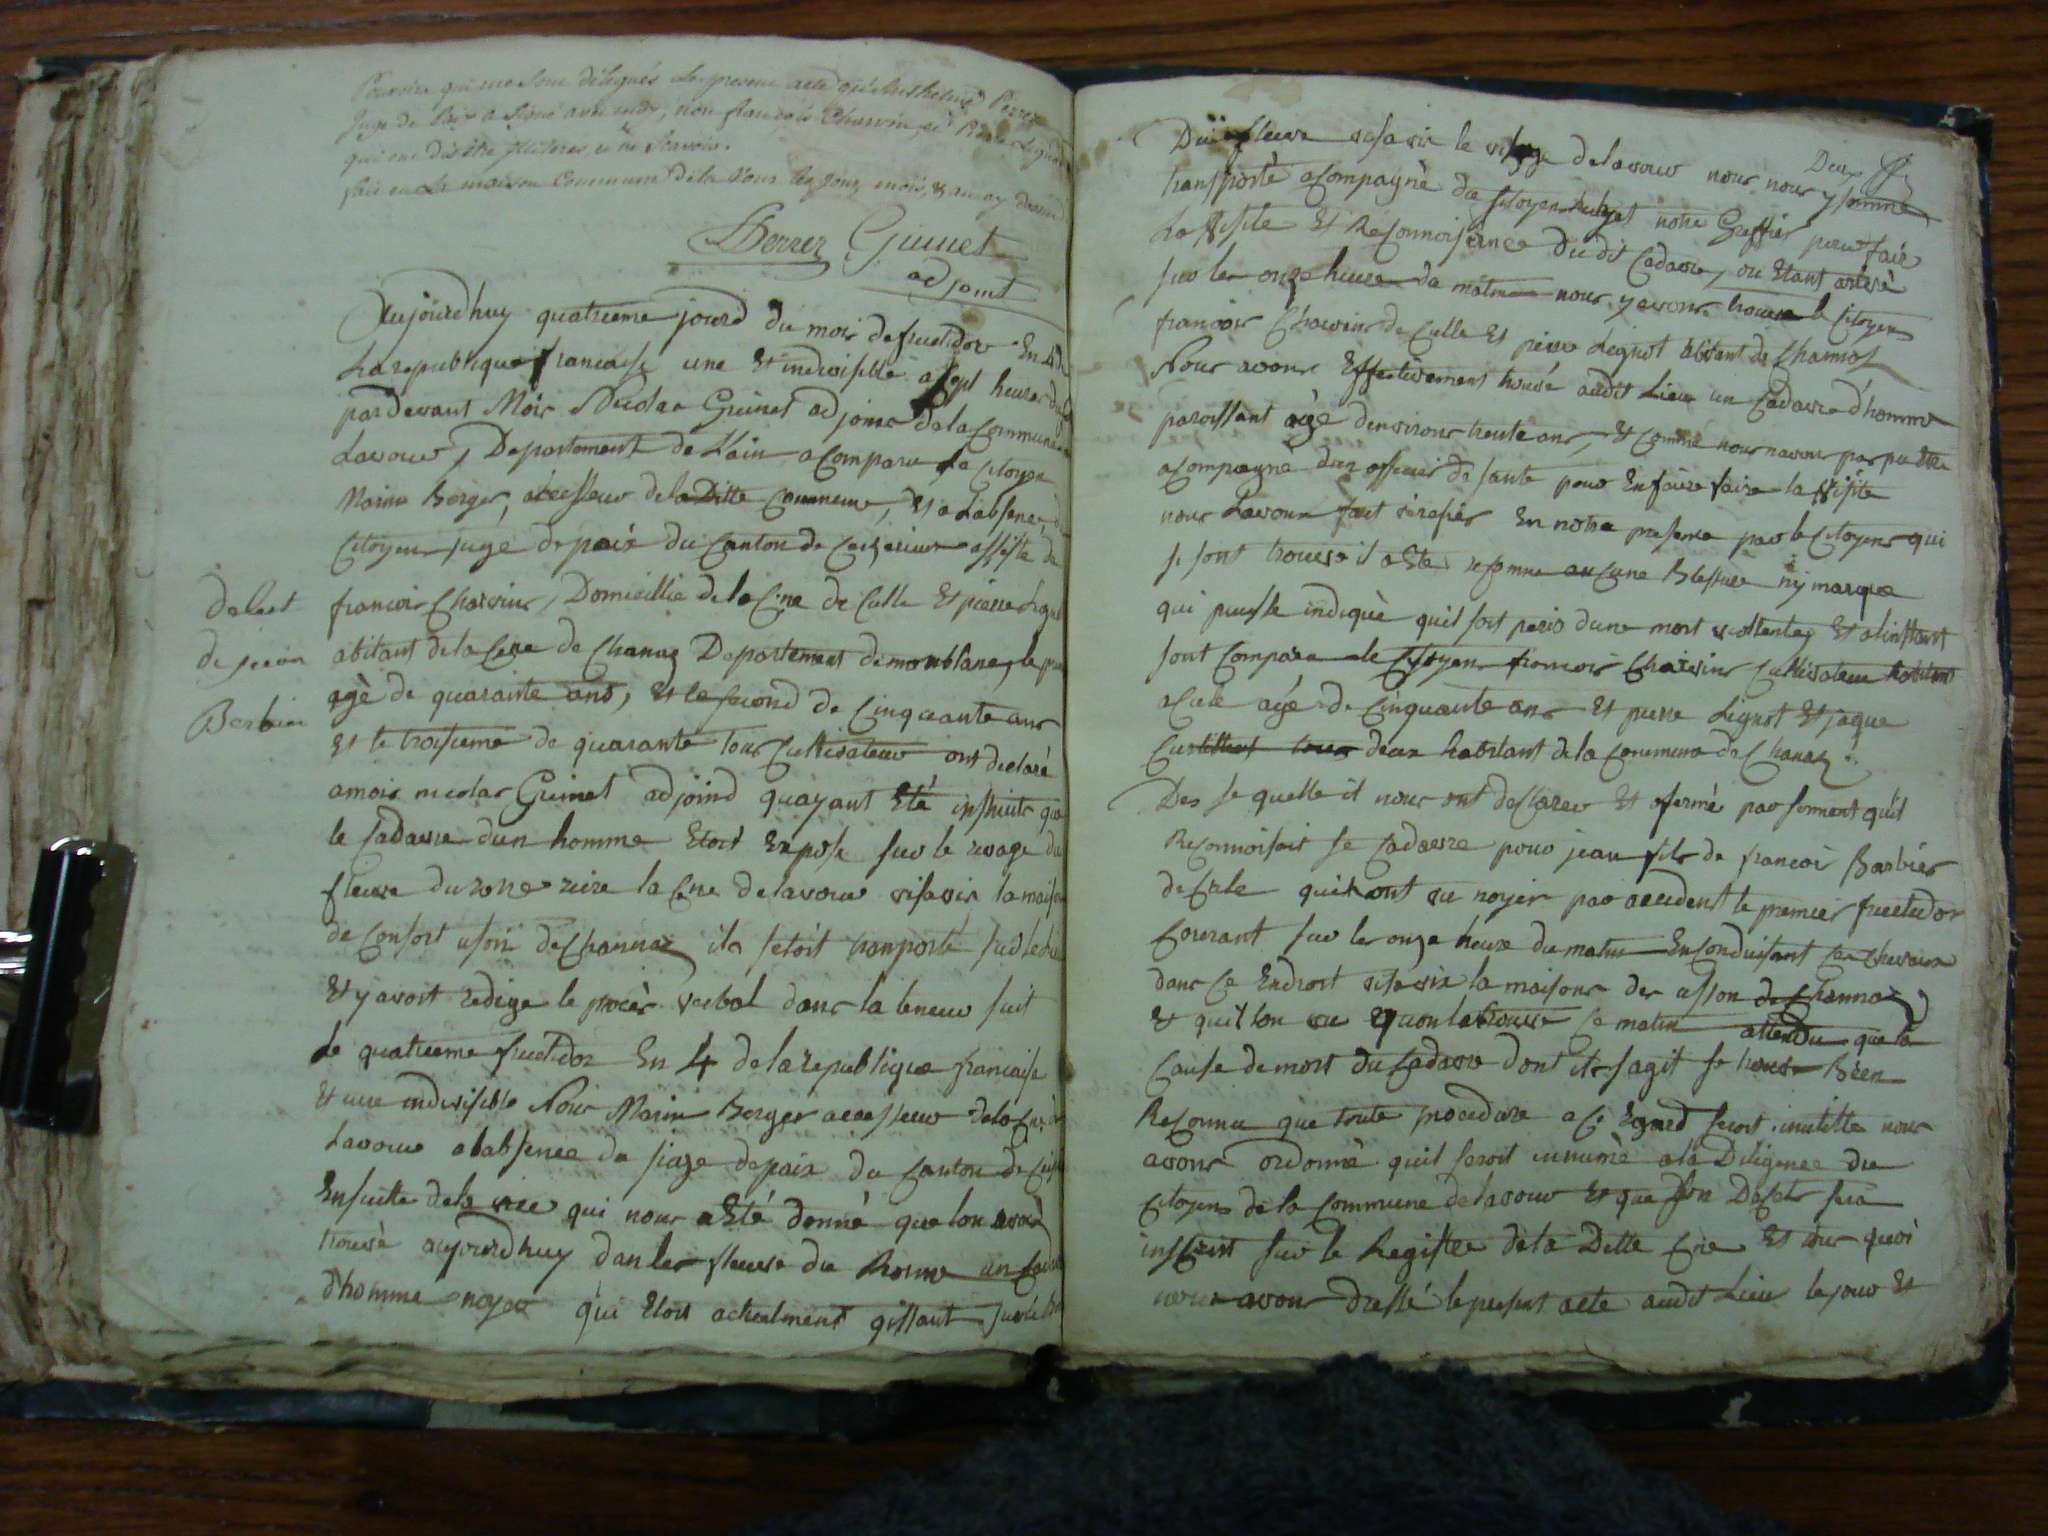 Pouvoirs qui me sont délégués Le present acte qu'Anthelme Perrer
Juge de Paix a Signé avec moy, non francois Charvin et
qui ont dit être illiteres, et ne Scavoir.
fait en la maison Commune de la Vour les jour, mois, & an cy dessus
Perrer Guinet
adjoint
Aujourdhuy quatrieme jourd du mois de fructidor En 4 de
La republique francaise une Et indivisible a sept heures du
pardevant Mois Nicolas Guinet adjoins de la Commune
Lavour, Departement de Lain a Comparu Le Citoyen
Marin Berger, acesseur de la Ditte Commune, Et a Labsence
Citoyen juge de paix du Canton de assisté de
francois Charvin, Domicillié de la Cne de Culle Et pierre Lignot
abitant de la Cne de Chanaz Departement de monblanc, le
agé de quarainte ans, Et le second de Cinquante ans
Et le troisieme de quarante tous Cultivateur ont declaré
a mois nicolas Guinet adjoind quayant Eté instruits que
le Cadavre dun homme Etoit Expose sur le rivage du
fleuve du rone rière la Cne de lavour visavis la maison
de Chanaz ils setoit tranporté sur le
Et y avoit redige le procès verbal dans la teneur suit
Le quatrieme fructidor En 4 de la republique francaise
Et une indivisible Nous Marin Berger accesseur de la Cne de
Lavour a labsence du juge de paix du Canton de
Ensuitte de la qui nous a Eté donné que lon avoit
trouvé aujourdhuy dan les fleuve du Ronne un Cadavre
dhomme noyer qui Etois actuelment gissant sur le
Deces
de jean
Barbier
Du fleuve visavis le vilage de lavour nous nous y somme
Deux
transporté acompagnè du Citoyen notre Greffier pour fair
La Visite Et Reconnoissance du dit Cadavre, ou Etant arivé
sur les onze heure da matin nous y avons trouvé le Citoyen
francois Charvin de Culle Et pierre Lignot abitant de Chanaz
Nous avons Effectivement trouvé audit Lieu un Cadavre d'homme
paroissant agé denvirons trente ans, Et Comme nous navons pas pu Etre
acompagné dun officier de santé pour En faire faire la Visite
nous Lavons fait En notre presence par le Citoyens qui
se sont trouvé il a Eté reconnu aucune Blessure ny marque
qui puisse indiqué quil soit peris dune mort viollente, Et alinstant
sont Compare le Citoyen francois Charvin Cultivateur habitant
a Cule agé de Cinquante ans Et pierre Lignot Et jaque
tous deux habitant de la Commune de Chanaz
Des se quelle il nous ont declarer Et afermé par serment quil
Reconnoisoit se Cadavre pour jean fils de francoi Barbier
de Cule quil ont vu noyer par accident le premier fructidor
Courant sur les onze heure du matin En Conduisant Ces Chevaux
dans Ce Endroit visavis la maisons des de Chanaz
Et quil lon vu quon la trouvé Ce matin attendu que la
Cause de mort du Cadavre dont il sagit se trouve Bien
Reconnu que toute procedure a Ce Egard seroit inutille nous
avons ordonné quil seroit innumè a la Diligence du
Citoyens de la Commune de lavour Et que son Deces sera
inscrint sur le Registre de la Ditte Cne Et sur quoi
nous avons dressé le present acte audit Lieu le jour Et